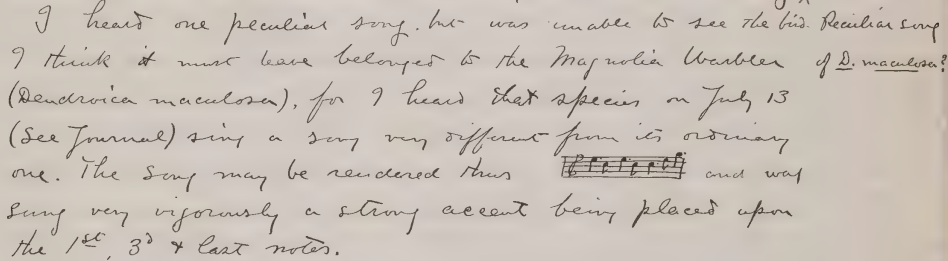 I heard one peculiar song. but was unable to see the bird. Peculiar song
I think it must have belonged to the Magnolia Warbler of D. maculosa?
(Dendroica maculosa), for I heard that species on July 13
(See Journal) sing a song very different from its ordinary
one. The song may be rendered thus and was
sung very vigorously a strong accent being placed upon
the 1st, 3d & last notes.